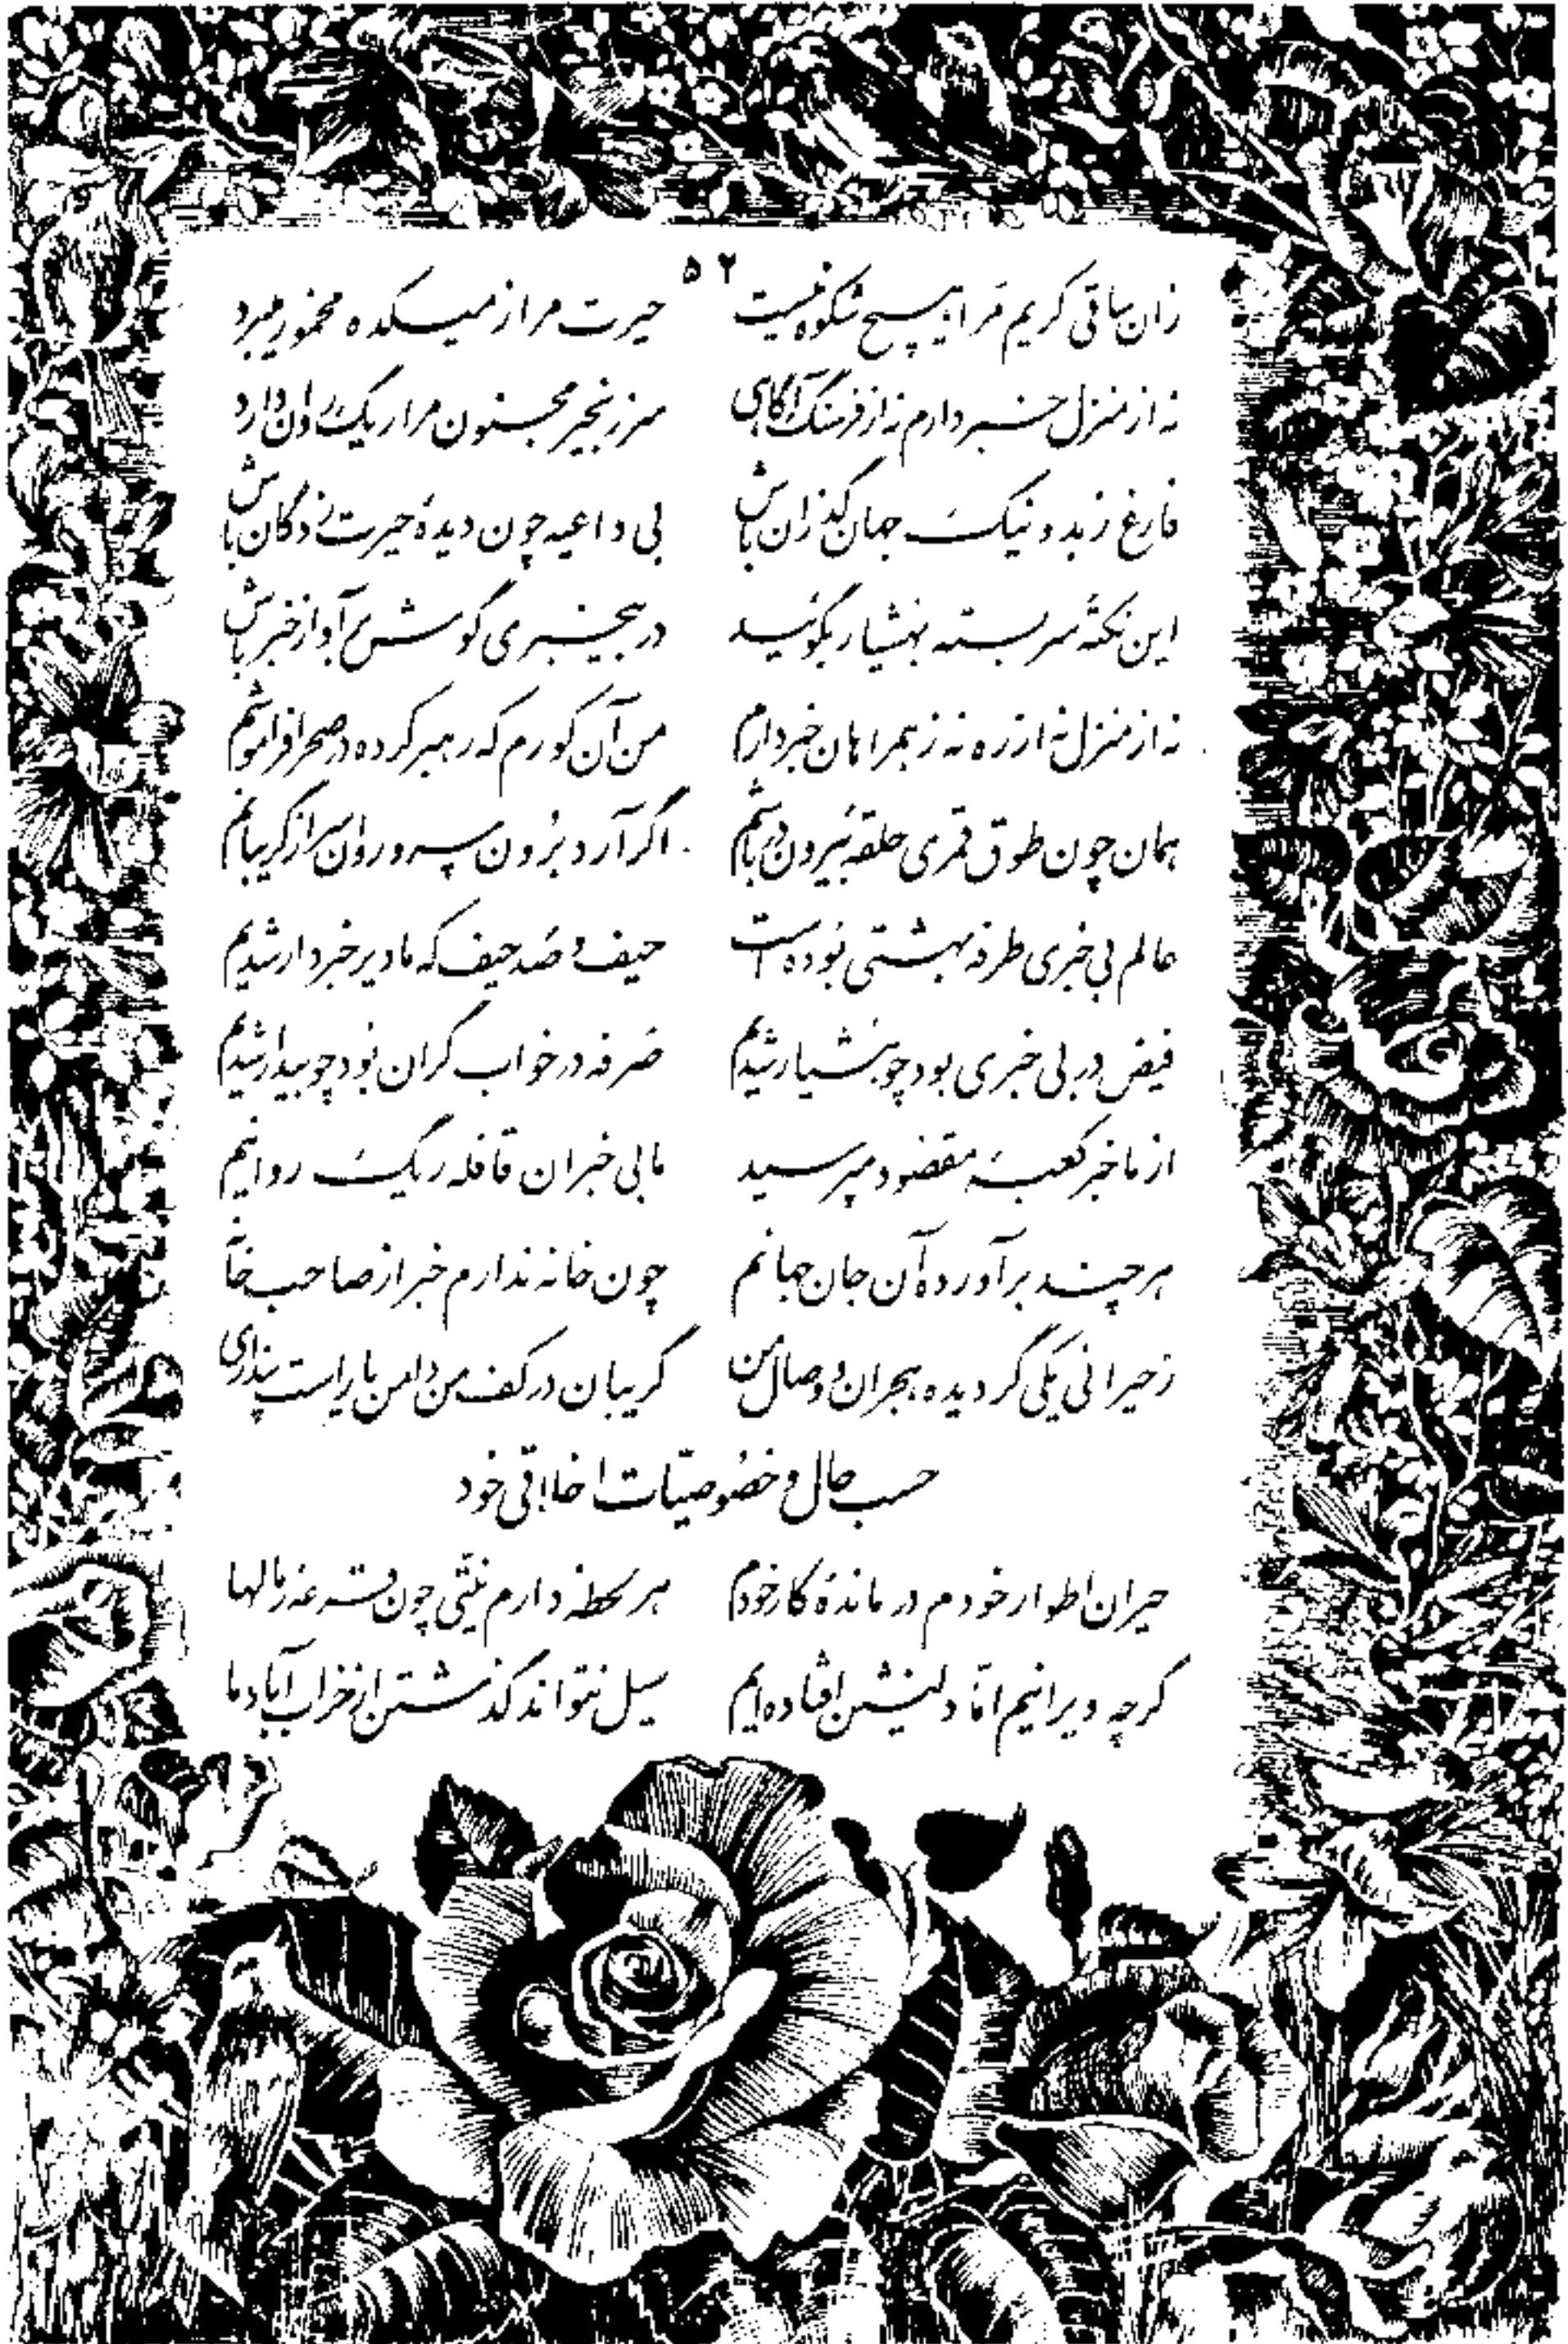 ۵۲
زان ساقی کریم مرا هیچ شکوه نیست حیرت مرا ز میکده مخمور میبرد
نه از منزل خبر دارم نه از فرسنگ آگاهی سر زنجیر مجنون مرا ریگ روان دارد
فارغ ز بد و نیک جهان گذران باش بی داعیه چون دیدهٔ حیرت زدگان باش
این نکتهٔ سر بسته بهشیار بگوئید در بیخبری گوش بآواز خبر باش
نه از منزل نه از ره نه ز همراهان خبر دارم من آن کورم که رهبر کرده در صحرا فراموشم
همان چون طوق قمری حلقه بیرون در باشم اگر آرد برون سرو روان سر از گریبانم
عالم بی خبری طرفه بهشتی بوده است حیف و صد حیف که ما دیر خبردار شدیم
فیض در بی خبری بود چو هشیار شدیم صرفه در خواب گران بود چو بیدار شدیم
از ما خبر کعبه مقصود مپرسید ما بی خبران قافله ریگ روانیم
هر چند برآوردهٔ آن جان جهانم چون خانه ندارم خبر از صاحب خانه
ز حیرانی یکی گردیده هجران و وصال من گریبان در کف من دامن یار است پنداری
حسب حال و خصوصیّات اخلاقی خود
حیران اطوار خودم در ماندهٔ کار خودم هر لحظه دارم نیّتی چون قرعه رمالها
گرچه ویرانیم امّا دلنشین افتاده ایم سیل نتواند گذشتن از خراب آباد ما